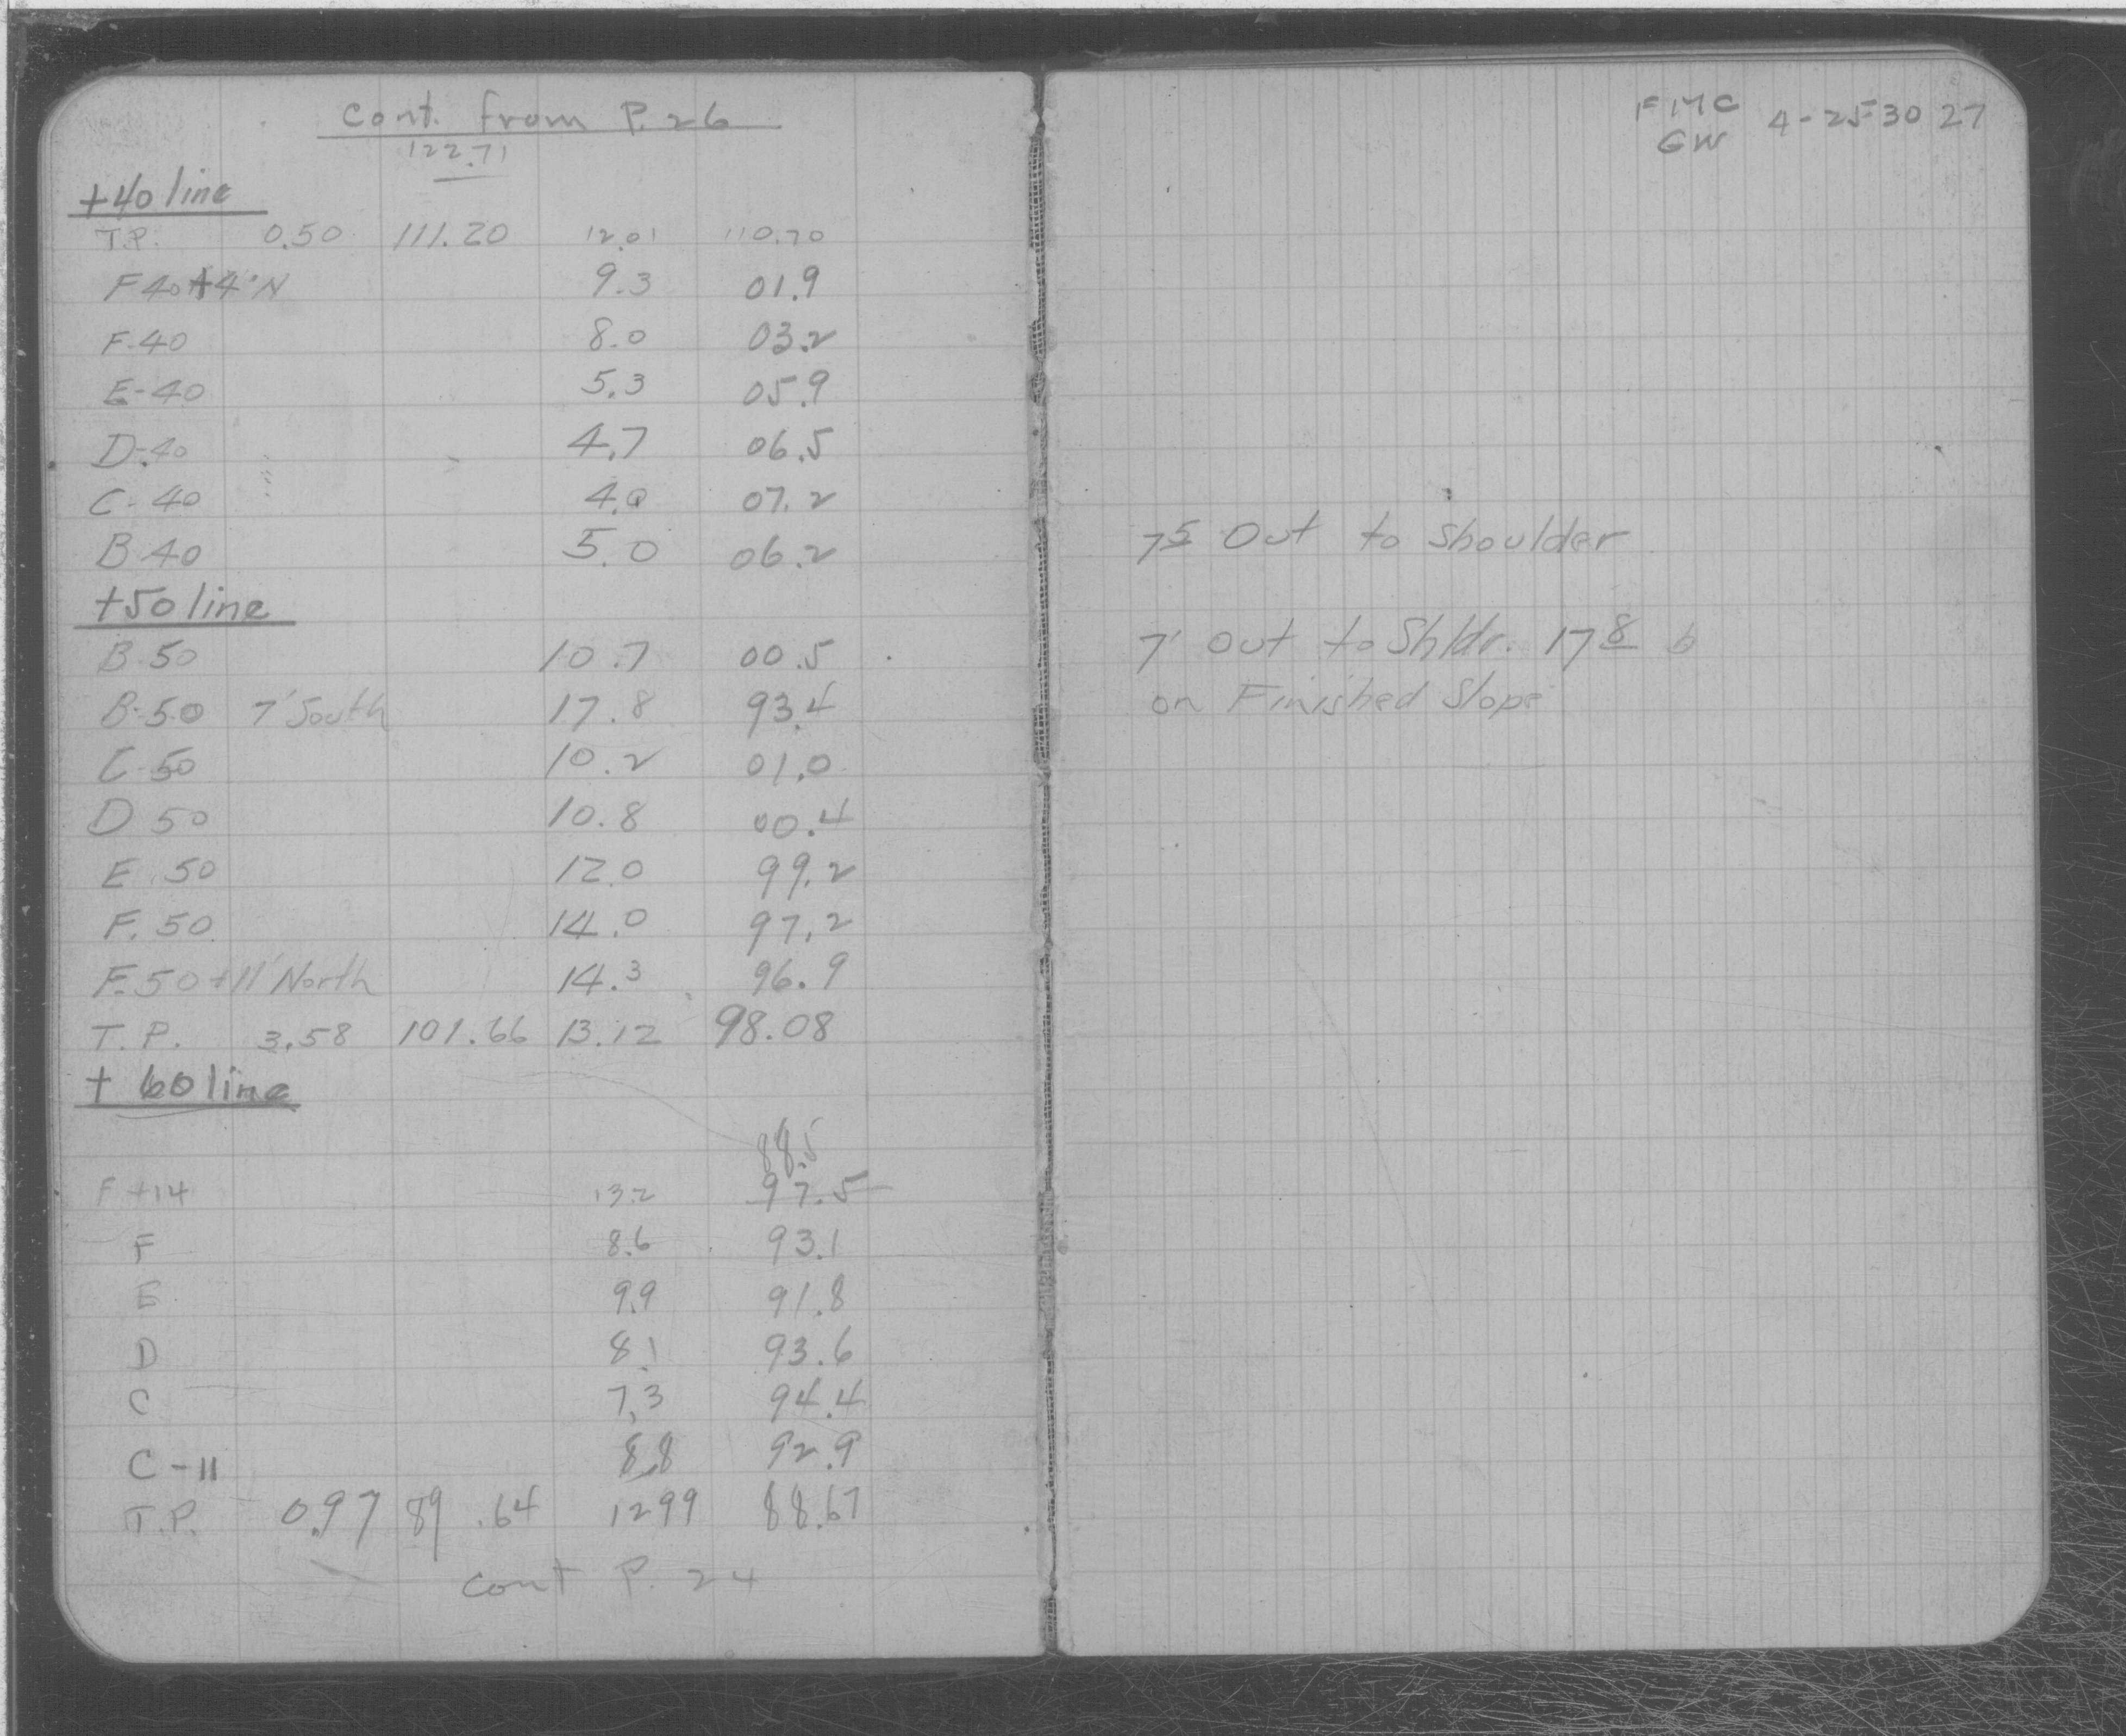 Cont. from P. 26
122.71
+40 line
T.P. 0.50 111.20 12.01 110.70
F 40+4' N 9.3 01.9
F-40 8.0 03.2
E-40 5.3 05.9
D-40 4.7 06.5
C-40 4.0 07.2
B 40 5.0 06.2
+50 line
B-50 10.7 00.5
B-50 7' South 17.8 93.4
C-50 10.2 01.0
D 50 10.8 00.4
E 50 12.0 99.2
F. 50 14.0 97.2
F.50+11' North 14.3 96.9
T.P. 3.58 101.66 13.12 98.08
+ 60 line
88.5
F +14 13.2 97.5
F 8.6 93.1
E 9.9 91.8
D 8.1 93.6
C 7.3 94.4
C-11 8.8 92.9
T.P. 0.97 89.64 1299 88.67
Cont P. 24
FMC
GW 4-25-30 27
7 5 Out to Shoulder
7' Out to Shldr. 17 8
on Finished Slope